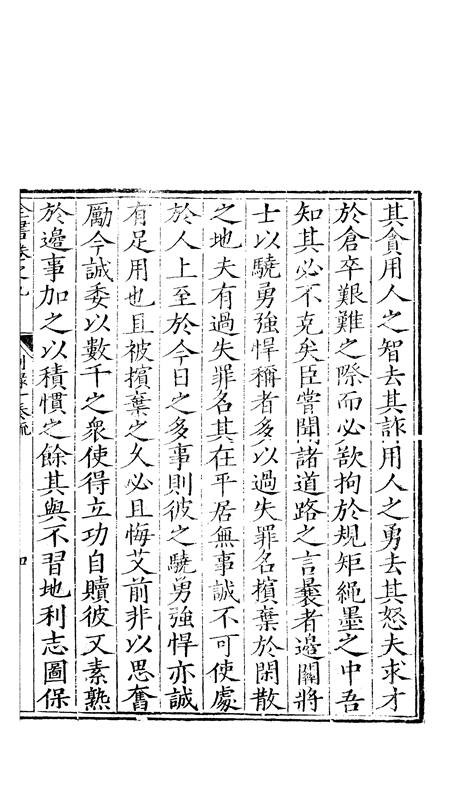 其貪用人之智去其詐用人之勇去其怒夫求才
於倉卒艱難之際而必欲拘於規矩繩墨之中吾
知其必不克矣臣嘗聞諸道路之言曩者邊關將
士以驍勇強悍稱者多以過失罪名擯棄於閑散
之地夫有過失罪名其在平居無事誠不可使處
於人上至於今日之多事則彼之驍勇強悍亦誠
有足用也且被擯棄之久必且悔艾前非以思奮
勵今誠委以數千之衆使得立功自贖彼又素熟
於邊事加之以積慣之餘其與不習地利志圖保
全書卷之九
別錄一奏疏